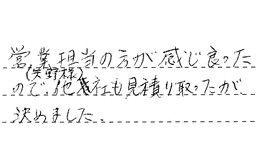 営業担当の方が感じ良った
(矢野様)
ので、他社も見積り取ったが
決めました。